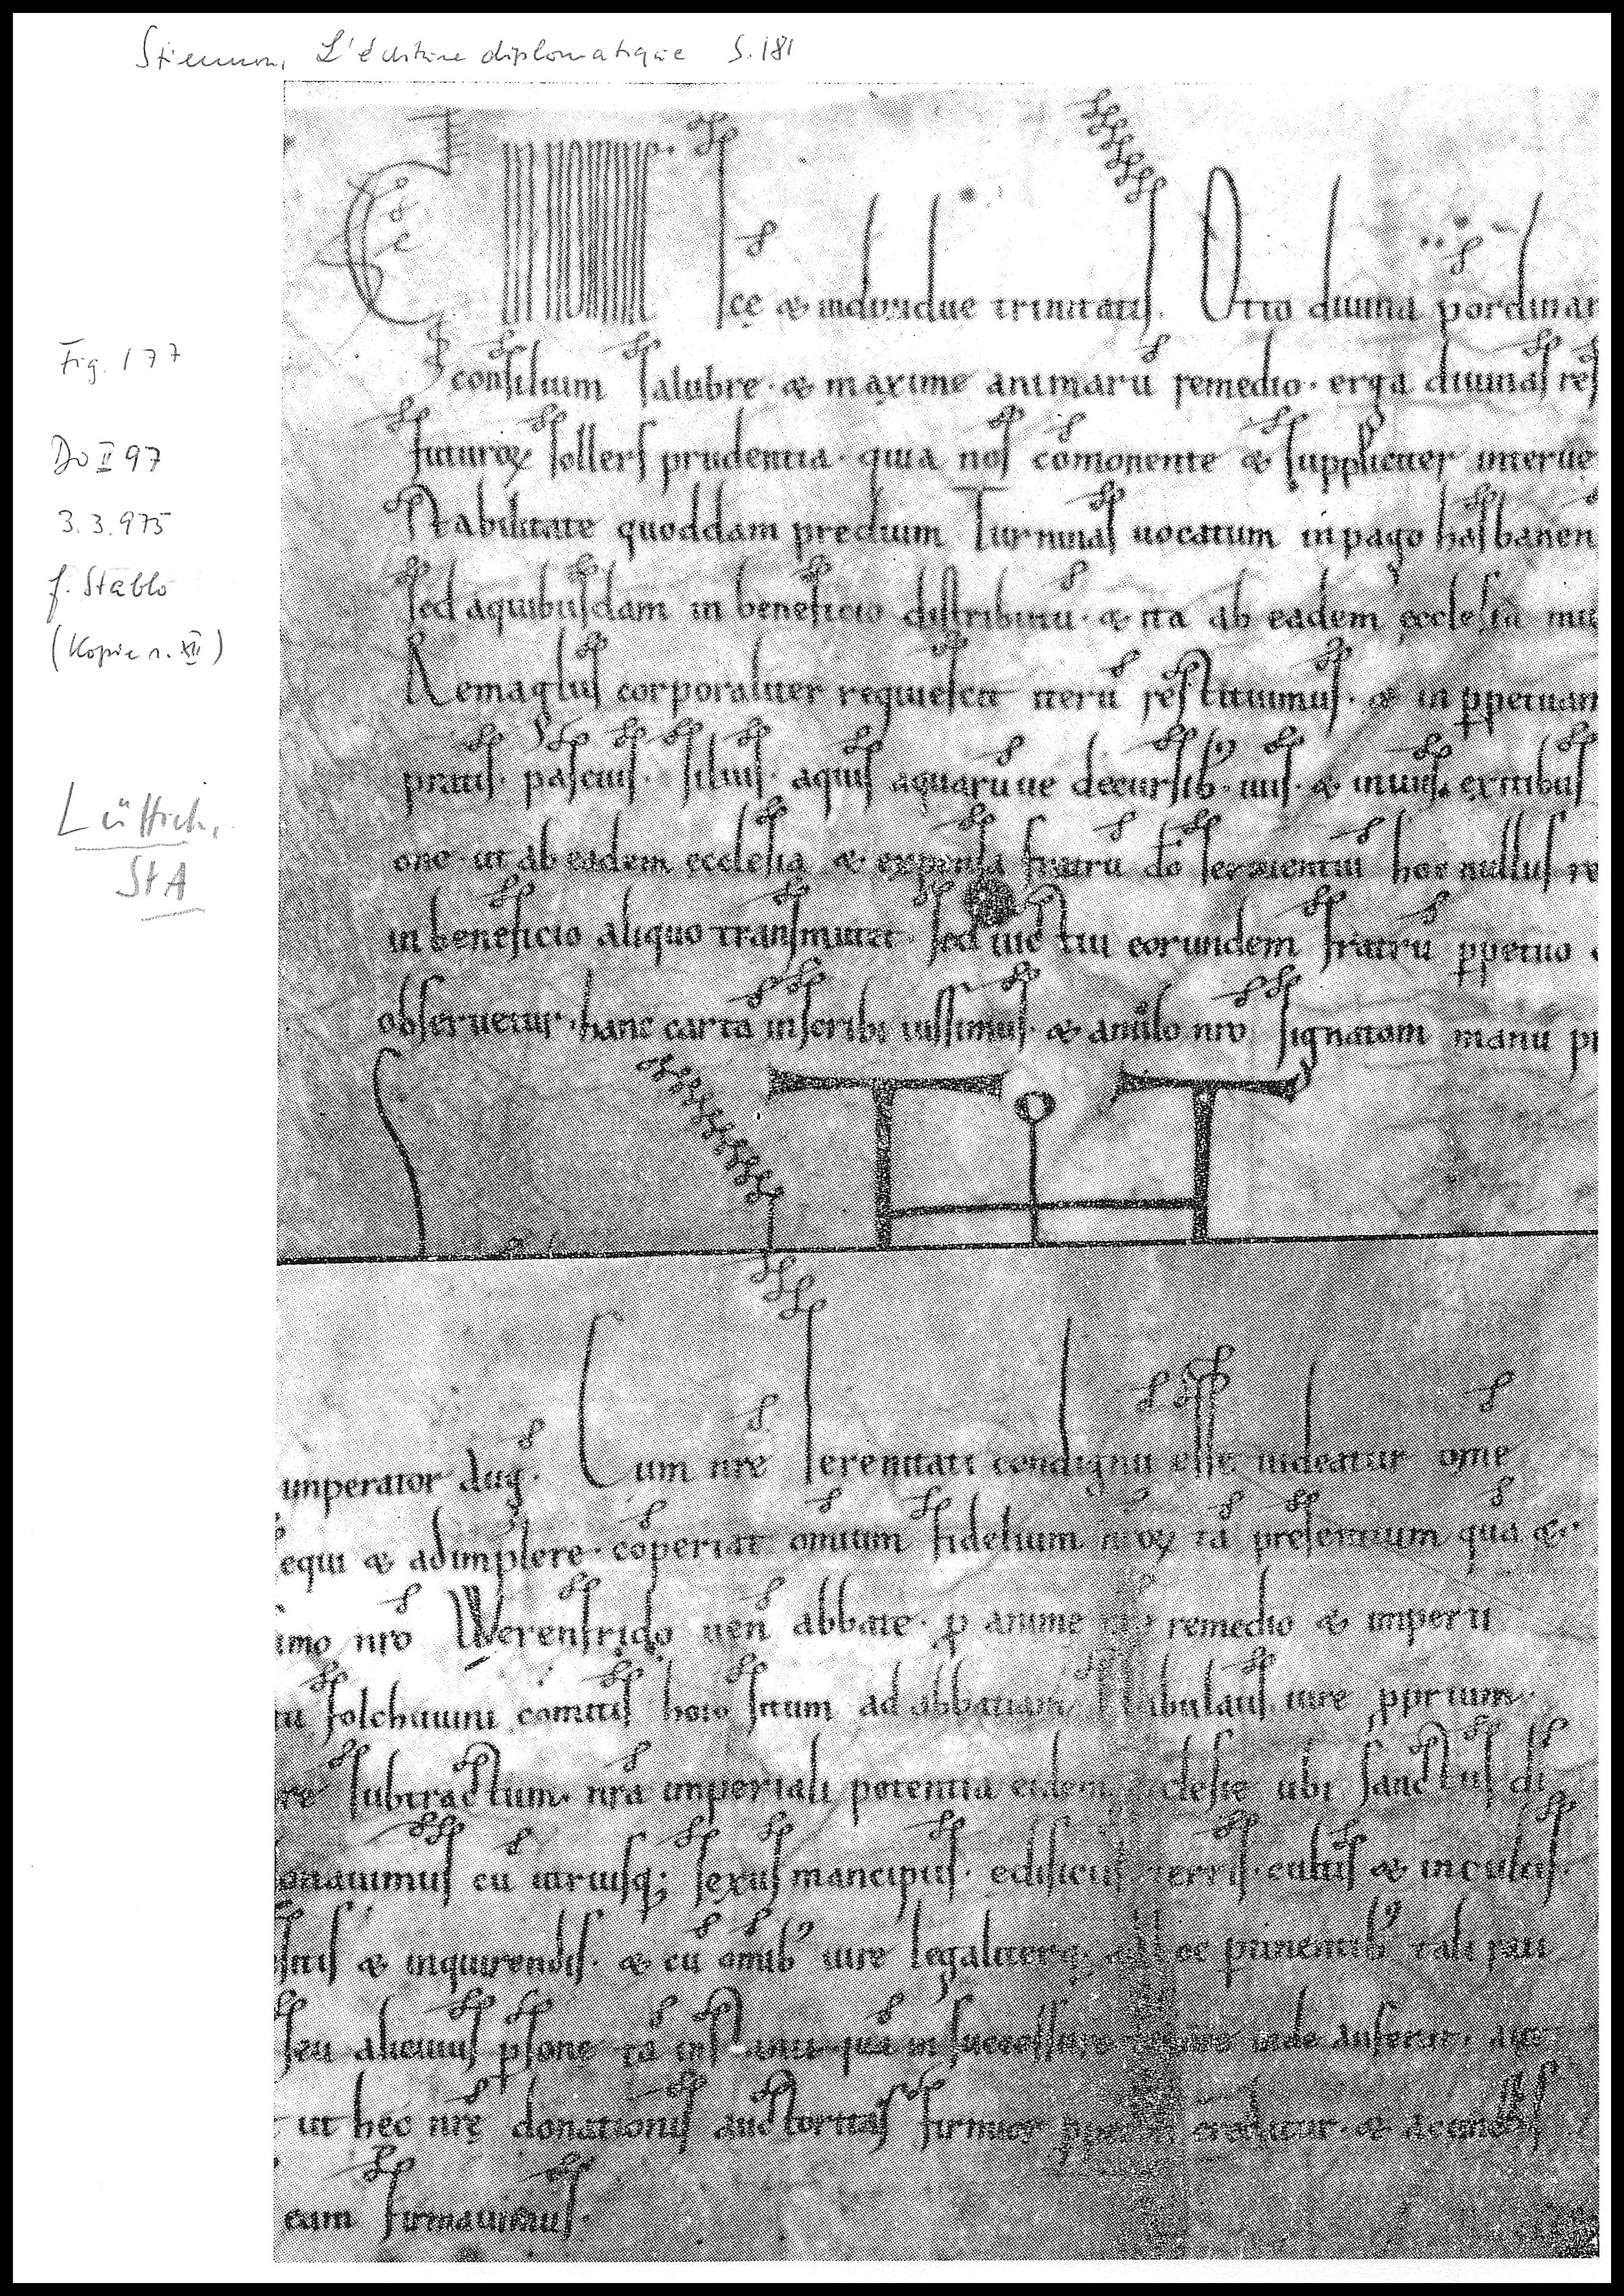 Stiennon, L'écriture diplomatique S. 181
Fig. 177
DO II 97
3.3.975
f. Stablo
(Kopie s. XII)
Lüttich,
StA
scę & individue trinitatis. Otto divina pordinan
consilium salubre · & maxime animarū remedio · erga divinas res
futuroꝝ sollers prudentia · quia nos cōmonente & suppliciter interve
stabilitate quoddam predium Turninas uocatum in pago hasbanen
sed aquibusdam in beneficio distributū · & ita ab eadem ęcclesia
Remaglus corporaliter requiescit iterū restituimus · & in ꝑpetuam
pratis · pascuis · siluis · aquis aquarūue decursib; · uiis · & inuiis · exitibus
one · ut ab eadem ęcclesia & expensa fratrū dō seruientiū hoc nullus re
in beneficio aliquo transmutet · sed usui eorundem fratrū ꝑpetuo
obseruetur · hanc cartā inscribi iussimus · & anulo nrō signatam manu
imperator aug̃. Cum nrē serenitati condignū esse uideatur om̄e
equi & adimplere · cōperiat omnium fidelium nr̄oꝝ tā presentium quā &
imo nrō Werenfrido ueñ abbate · ꝓ anime remedio & imperii
folchuuini comitis sitam ad abbatiam stabulaus iure ꝓprium ·
re subtractum · nrā imperiali potentia eidem ecclesie ubi sanctus
onauimus cū utriusq; sexus mancipiis · edificiis terris · cultis & incultis ·
sitis & inquirendis · & cū om̄ib; iure legaliterq; ad hoc ꝑtinentib; tali
seu alicuius ꝑsonę tā inde auferat · aut
ut hec nrę donationis auctoritas firmior credatur · &
eam firmauimus ·